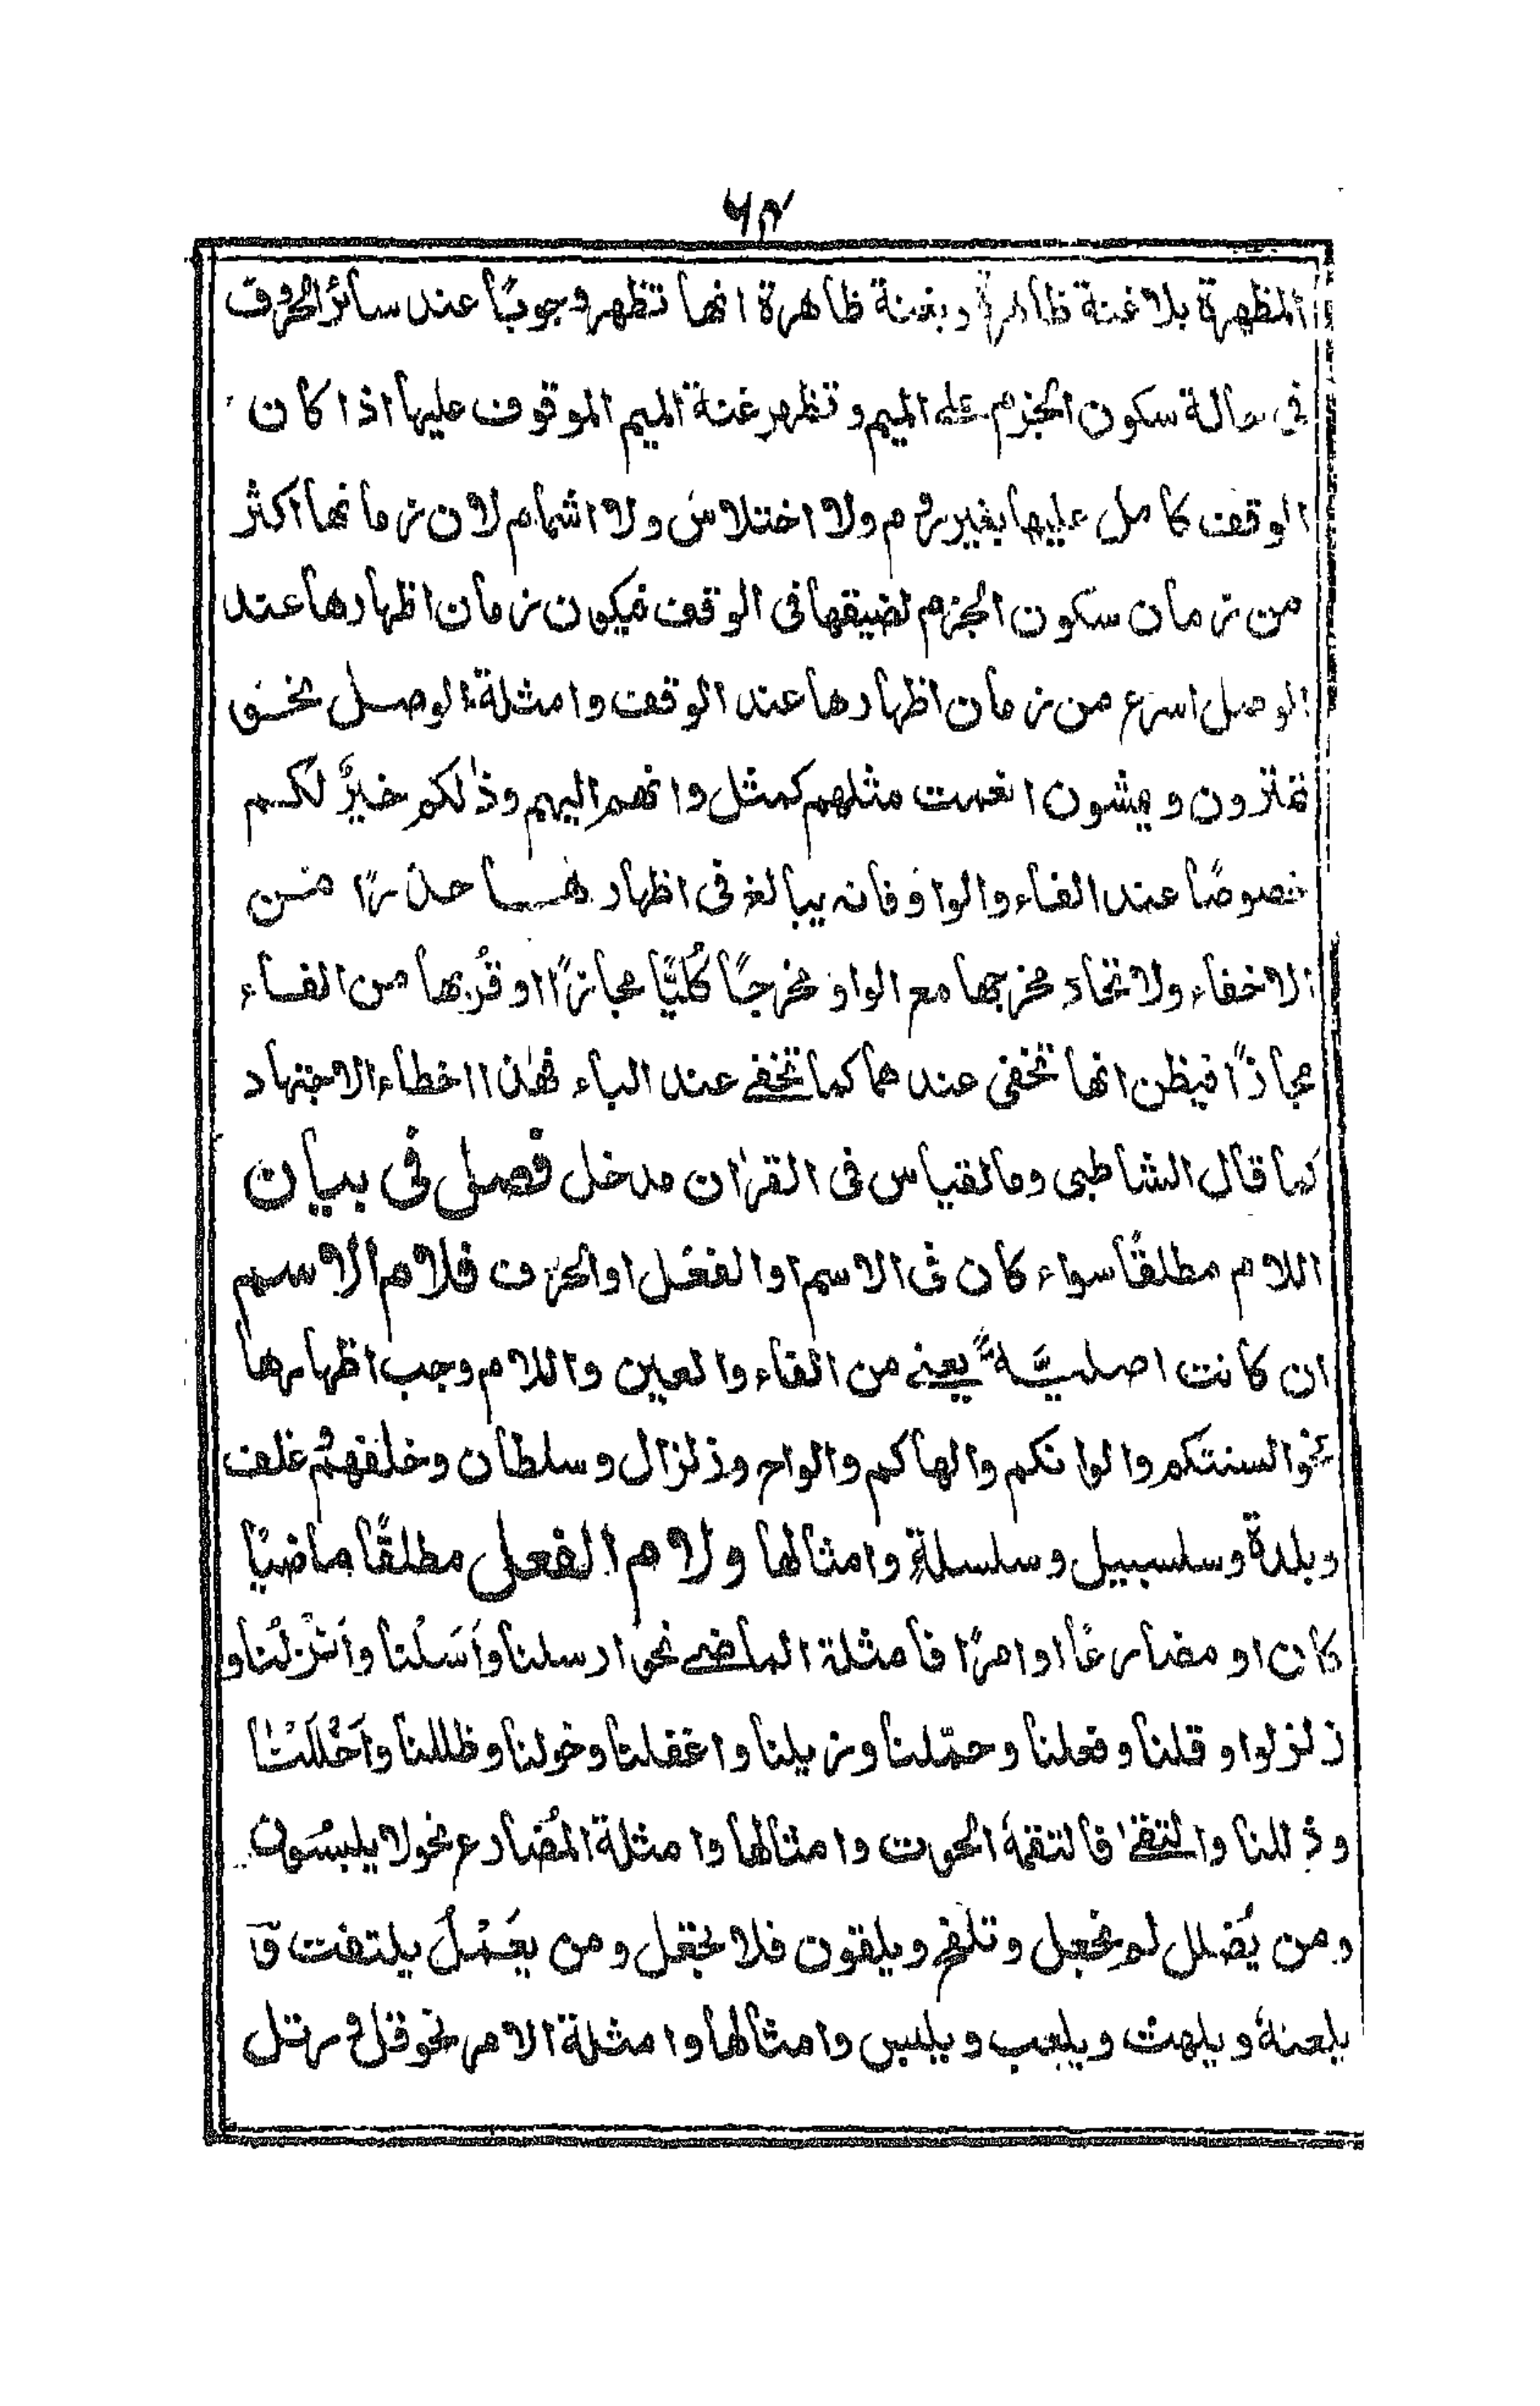 ٦٤
المظهرة بلا غنة ظاهرة وبغنة ظاهرة انها تظهر وجوبًا عند سائر الحروف
فى حالة سكون الجزم على الميم وتظهر غنة الميم الموقوف عليها اذا كان
الوقف كامل عليها بغير روم ولا اختلاس ولا اشمام لان زمانها اكثر
من زمان سكون الجزم لضيقها فى الوقف فيكون زمان اظهارها عند
الوصل اسرع من زمان اظهارها عند الوقف وامثلة الوصل نحو
تمترون ويمشون انعمت مثلهم كمثل وانهم اليهم وذٰلكم خيرٌ لكم
خصوصًا عند الفاء والواو فانه يبالغ فى اظهارها حذرًا من
الاخفاء ولاتحاد مخرجها مع الواو مخرجًا كُليًّا مجازًا او قُربها من الفاء
مجازًا فيظن انها تخفى عندهما كما تخفى عند الباء فهٰذا اخطاء الاجتهاد
كما قال الشاطبى وما لقياس فى القراٰن مدخل فصل فى بيان
اللام مطلقًا سواء كان فى الاسم او الفعل او الحرف فلام الاسم
ان كانت اصليَّةً يعنى من الفاء والعين واللام وجب اظهارها
نحو السنتكم والوانكم والهاكم والواح وزلزال وسلطان وخلفهم غلف
وبلدة وسلسبيل وسلسلةٍ وامثالها ولام الفعل مطلقًا ماضيًا
كان او مضارعًا او امرًا فامثلة الماضى نحو ارسلنا وَاَسَلْنا وَاَنْزَلْنا و
زلزلوا وقلنا وفعلنا وحمّلنا وزيلنا واغفلنا وخولنا وظللنا وَاَحْلَلْنا
وذللنا والتقى فالتقمهُ الحوت وامثالها وامثلة المُضارع نحو لا يلبسُون
ومن يُضلل لم نجعل وتلفح ويلقون فلا تجعل ومن يَعْمَلْ يلتفت
يلعنهُ ويلهث ويلعب ويلبس وامثالها وامثلة الامر نحو قل ورتل